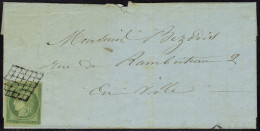 Monsieur
rue de Rambuteau 2
En Ville